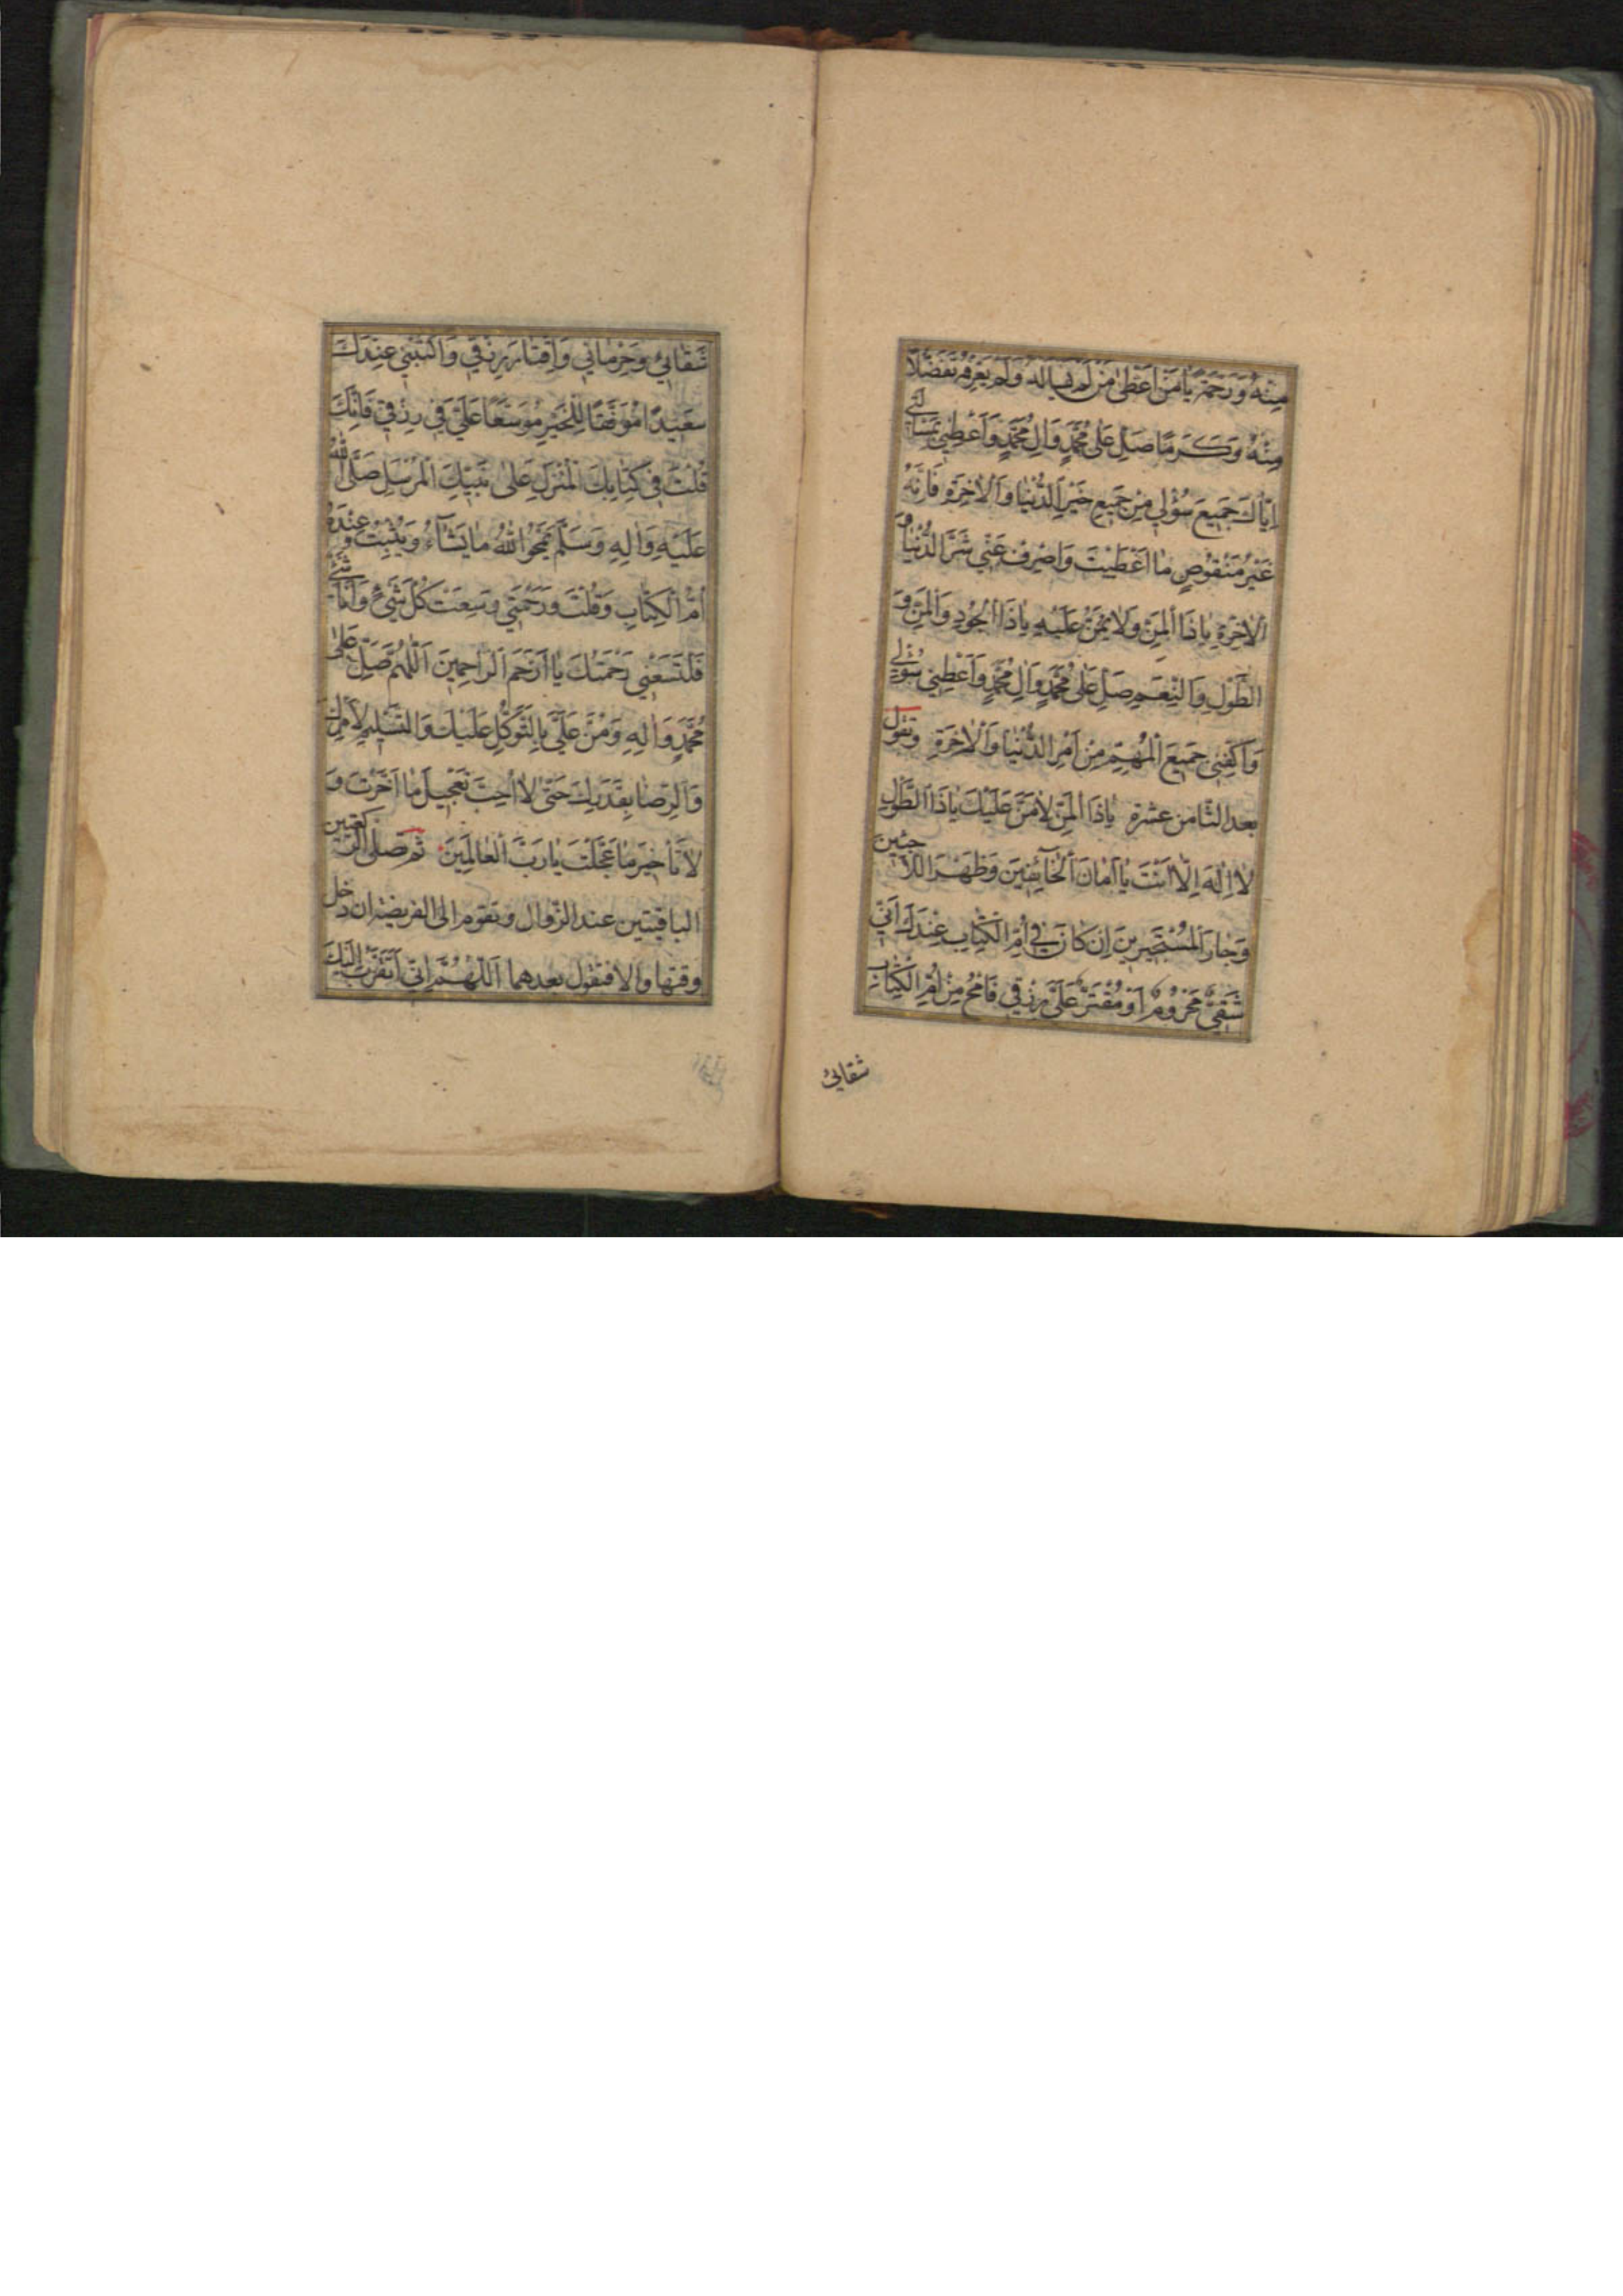 مِنْهُ وَرَحْمَةً يَا مَنْ اَعْطىٰ مَنْ لَمْ يَسْاَلْهُ وَلَمْ يَعْرِفْهُ تَفَضُّلًا
مِنْهُ وَكَرَمًا صَلِّ عَلىٰ مُحَمَّدٍ وَاٰلِ مُحَمَّدٍ وَاَعْطِنِي بِمَسْاَلَتِي
اِيَّاكَ جَمِيعَ سُؤْلِي مِنْ جَمِيعِ خَيْرِ الدُّنْيَا وَالْاٰخِرَةِ فَاِنَّهُ
غَيْرُ مَنْقُوصٍ مَا اَعْطَيْتَ وَاصْرِفْ عَنِّي شَرَّ الدُّنْيَا وَ
الْاٰخِرَةِ يَا ذَا الْمَنِّ وَلَا يُمَنُّ عَلَيْهِ يَا ذَا الْجُودِ وَالْمَنِّ وَ
الطَّوْلِ وَالنِّعَمِ صَلِّ عَلىٰ مُحَمَّدٍ وَاٰلِ مُحَمَّدٍ وَاَعْطِنِي سُؤْلِي
وَاكْفِنِي جَمِيعَ الْمُهِمِّ مِنْ اَمْرِ الدُّنْيَا وَالْاٰخِرَةِ وتقول
بعد الثامن عشرة يَا ذَا الْمَنِّ لَا مَنَّ عَلَيْكَ يَا ذَا الطَّوْلِ
لَا اِلٰهَ اِلَّا اَنْتَ يَا اَمَانَ الْخَآئِفِينَ وَظَهْرَ اللَّاجِئِينَ
وَجَارَ الْمُسْتَجِيرِينَ اِنْ كَانَ فِي اُمِّ الْكِتَابِ عِنْدَكَ اَنِّي
شَقِيٌّ مَحْرُومٌ اَوْ مُقْتَرٌ عَلَيَّ رِزْقِي فَامْحُ مِنْ اُمِّ الْكِتَابِ
شقائي
شَقَائِي وَحِرْمَانِي وَاِقْتَارَ رِزْقِي وَاكْتُبْنِي عِنْدَكَ
سَعِيدًا مُوَفَّقًا لِلْخَيْرِ مُوَسَّعًا عَلَيَّ فِي رِزْقِي فَاِنَّكَ
قُلْتَ فِي كِتَابِكَ الْمُنْزَلِ عَلىٰ نَبِيِّكَ الْمُرْسَلِ صَلَّى اللهُ
عَلَيْهِ وَاٰلِهِ وَسَلَّمَ يَمْحُوا اللهُ مَا يَشَآءُ وَيُثْبِتُ وَعِنْدَهُ
اُمُّ الْكِتَابِ وَقُلْتَ وَرَحْمَتِي وَسِعَتْ كُلَّ شَيْءٍ وَاَنَا شَيْءٌ
فَلْتَسَعْنِي رَحْمَتُكَ يَا اَرْحَمَ الرَّاحِمِينَ اَللّٰهُمَّ صَلِّ عَلىٰ
مُحَمَّدٍ وَاٰلِهِ وَمُنَّ عَلَيَّ بِالتَّوَكُّلِ عَلَيْكَ وَالتَّسْلِيمِ لِاَمْرِكَ
وَالرِّضَا بِقَدَرِكَ حَتّىٰ لَا اُحِبَّ تَعْجِيلَ مَا اَخَّرْتَ وَ
لَا تَأْخِيرَ مَا عَجَّلْتَ يَا رَبَّ الْعَالَمِينَ ثم تصلى الركعتين
الباقيتين عند الزوال وتقوم الى الفريضة ان دخل
وقتها والا فتقول بعدهما اَللّٰهُمَّ اِنِّي اَتَقَرَّبُ اِلَيْكَ